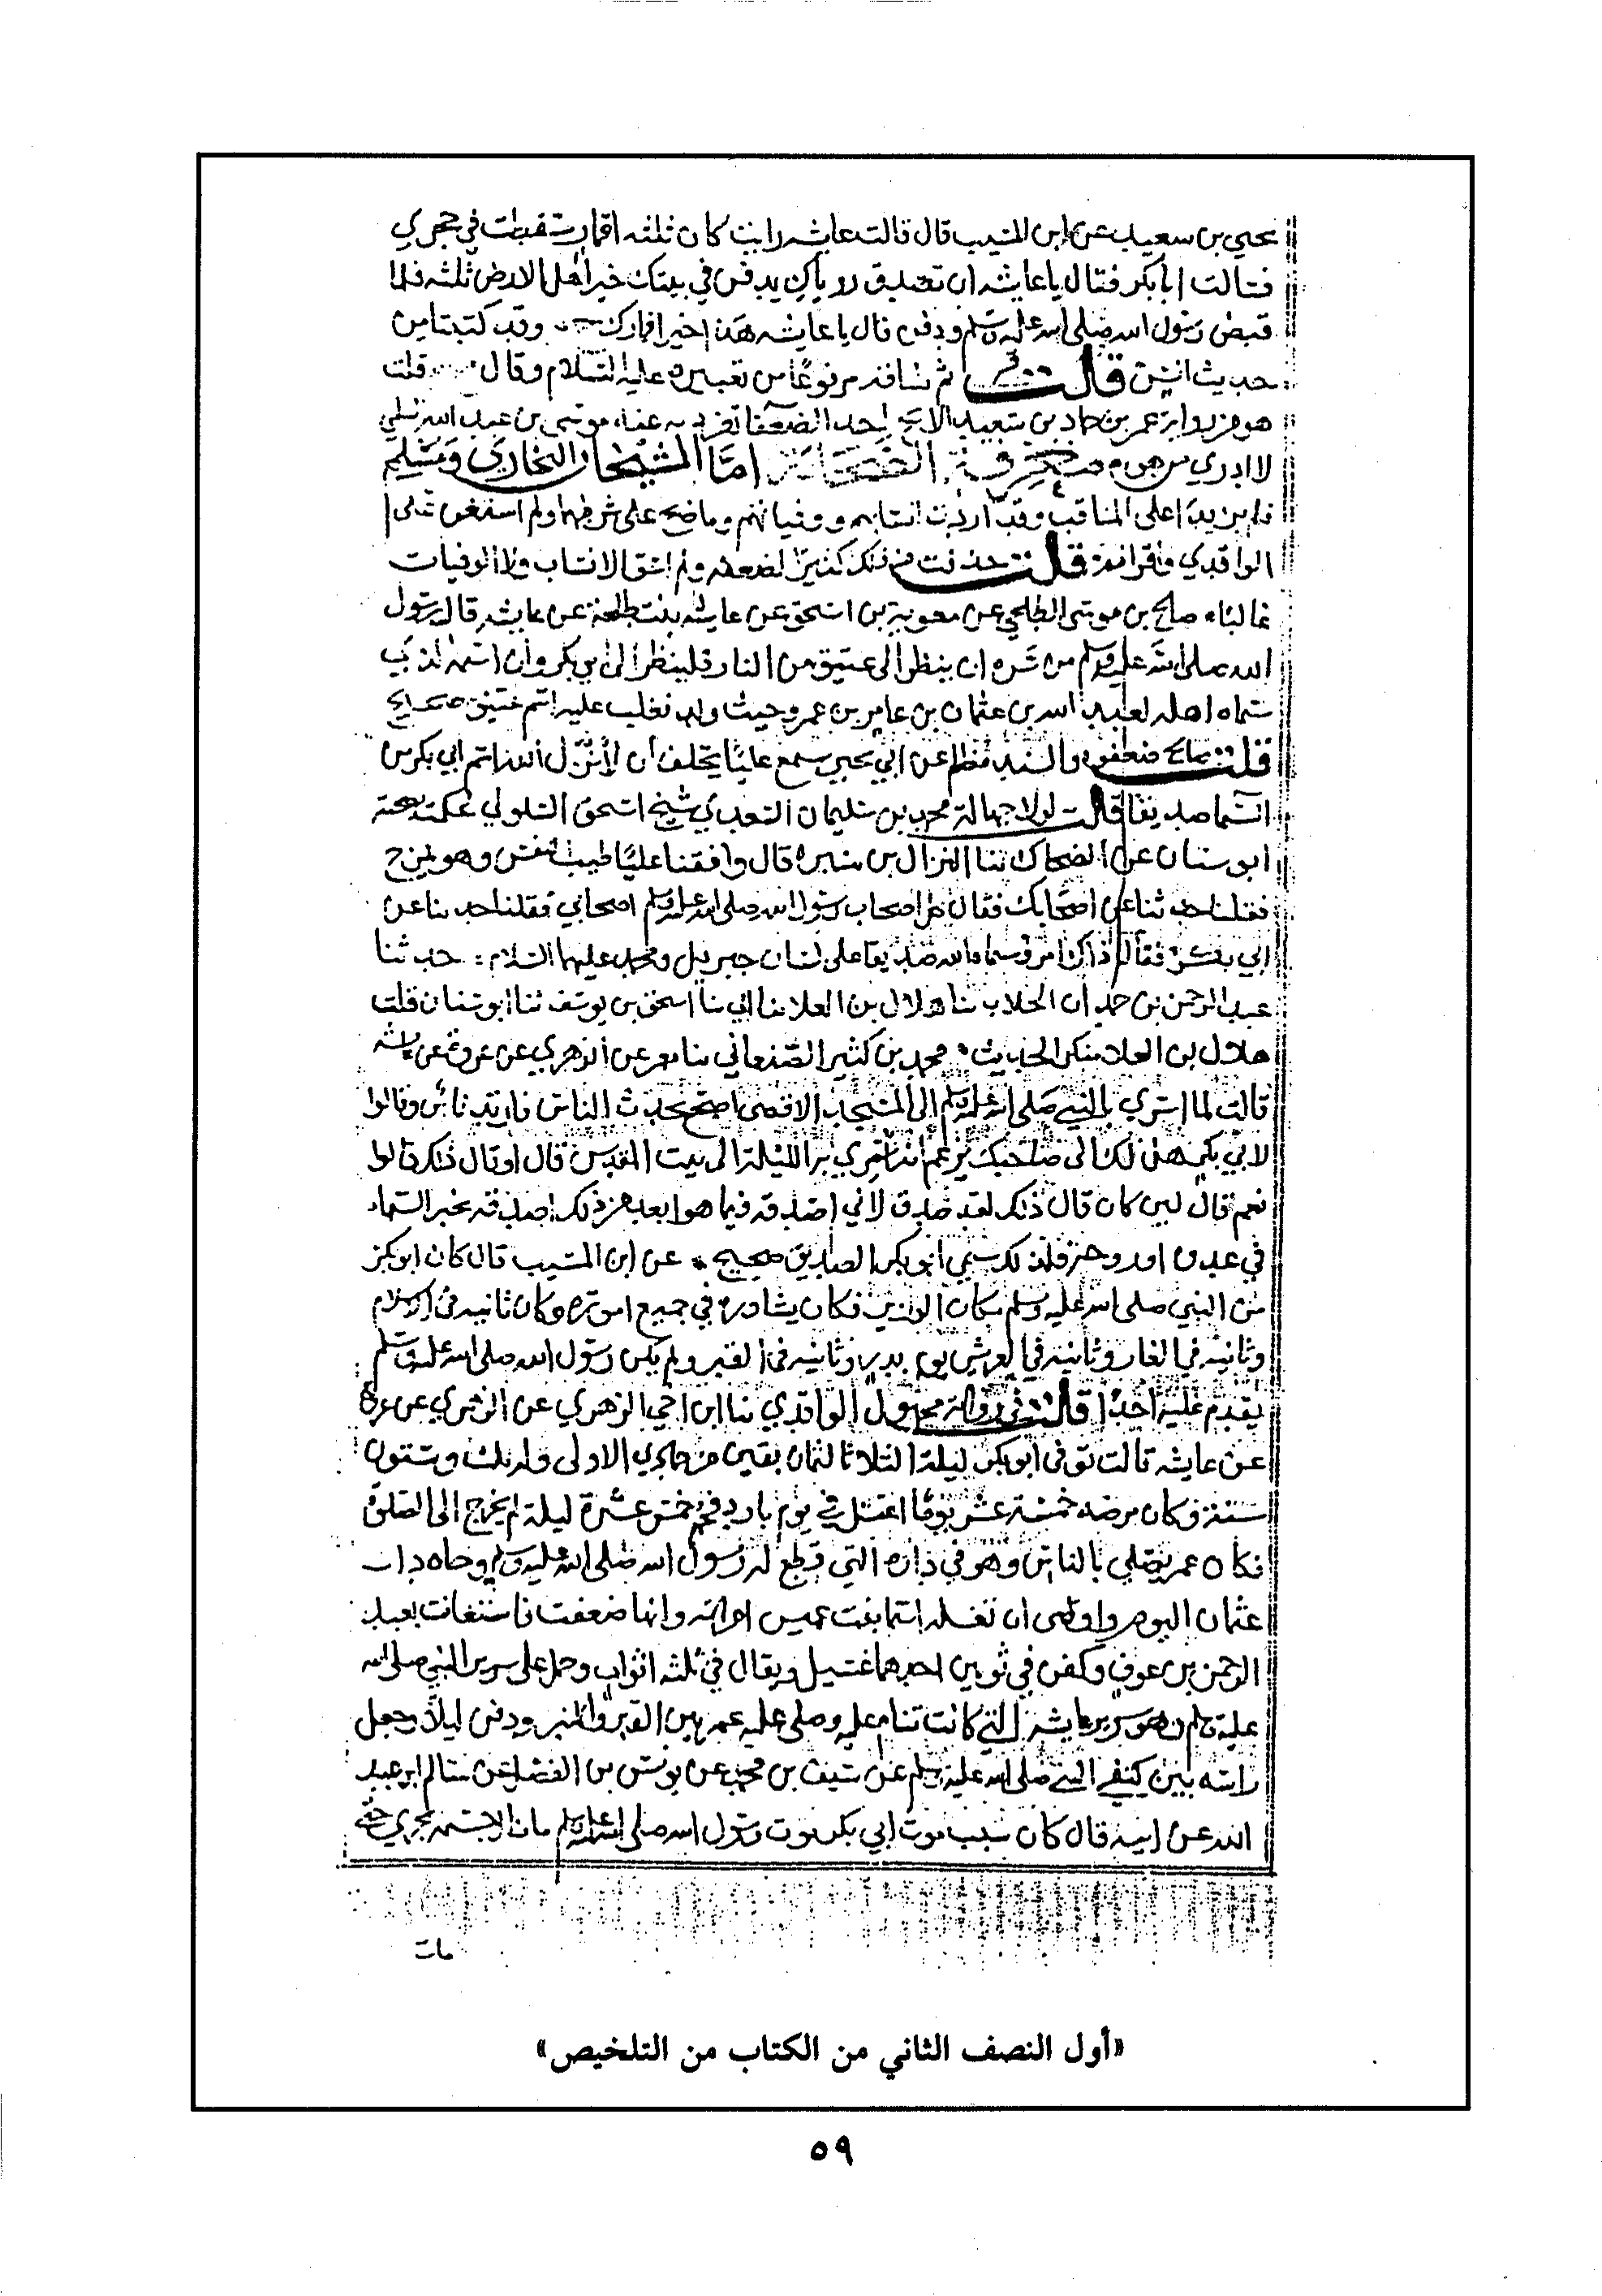 يحيى بن سعيد عن ابن المسيب قال قالت عايشه رايت كان ثلثه اقمار سقطت في حجري
فسالت ابا بكر فقال يا عايشه ان تصدق روياك يدفن في بيتك خير اهل الارض ثلثه فلما
قبض رسول الله صلى الله عليه وسلم ودفن قال يا عايشه هذا خير اقمارك وقد كتبتا من
حديث انس قلت ثم ساقه مرفوعا من تعبيره عليه السلام وقال قلت
هو من رواية عمر بن حماد بن سعيد الابح احد الضعفا تفرد به عنه موسى بن عبد الله السلمي
لا ادري من هو معرفة الصحابة اما الشيخان البخاري ومسلم
فلم يزيدا على المناقب وقد اردت انسابهم ووفياتهم وما صح على شرطهما ولم استغن عن
الواقدي واقرانه قلت حذفت من ذلك كثيرا لضعفه ولم اسق الانساب ولا الوفيات
غالبا صالح بن موسى الطلحي عن معوية بن اسحق عن عايشه بنت طلحة عن عايشه قال رسول
الله صلى الله عليه وسلم من سره ان ينظر الى عتيق من النار فلينظر الى ابي بكر وان اسمه الذي
سماه اهله لعبد الله بن عثمان بن عامر بن عمرو حيث ولد فغلب عليه اسم عتيق صحيح
قلت صالح ضعفوه والسند مظلم عن ابي يحيى سمع عليا يحلف ان لأنزل الله اسم ابي بكر من
السما صديقا قلت لولا جهالة محمد بن سليمان السعدي شيخ اسحق السلولي لحكمت بصحته
ابو سنان عن الضحاك ثنا النزال بن سبره قال وافقنا عليا طيب النفس وهو يمزح
فقلنا حدثنا عن اصحابك فقال كل اصحاب رسول الله صلى الله عليه وسلم اصحابي فقلنا حدثنا عن
ابي بكر فقال ذاك امرو سماه الله صديقا على لسان جبريل ومحمد عليهما السلام حدثنا
عبد الرحمن بن حمدان الجلاب ثنا هلال بن العلا ثنا ابي ثنا اسحق بن يوسف ثنا ابو سنان قلت
هلال بن العلا منكر الحديث محمد بن كثير الصنعاني ثنا معمر عن الزهري عن عروة عن عايشه
قالت لما اسري بالنبي صلى الله عليه وسلم الى المسجد الاقصى اصبح يحدث الناس فارتد ناس وقالوا
لابي بكر هل لك الى صاحبك يزعم انه اسري به الليلة الى بيت المقدس قال او قال ذلك قالوا
نعم قال لين كان قال ذلك لقد صدق لاني اصدقه فيما هو ابعد من ذلك اصدقه بخبر السماء
في غدوه او روحه فلذلك سمي ابو بكر الصديق صحيح عن ابن المسيب قال كان ابو بكر
من النبي صلى الله عليه وسلم مكان الوزير فكان يشاوره في جميع اموره وكان ثانيه في الاسلام
وثانيه في الغار وثانيه في العريش يوم بدر وثانيه في القبر ولم يكن رسول الله صلى الله عليه وسلم
يقدم عليه احدا قلت في رواته مجهول الواقدي ثنا ابن اخي الزهري عن الزهري عن عروة
عن عايشه قالت توفى ابو بكر ليلة الثلاثا لثمان بقين من جمادي الاولى وله ثلث وستون
سنة وكان مرضه خمسة عشر يوما اغتسل في يوم بارد فحم خمس عشرة ليلة لم يخرج الى الصلوة
فكان عمر يصلي بالناس وهو في داره التي قطع له رسول الله صلى الله عليه وسلم وجاه دار
عثمان اليوم واوصى ان تغسله اسما بنت عميس امراته وانها ضعفت فاستعانت بعبد
الرحمن بن عوف وكفن في ثوبين احدهما غسيل ويقال في ثلثه اثواب وحمل على سرير النبي صلى الله
عليه وسلم وهو سرير عايشه التي كانت تنام عليه وصلى عليه عمر بين القبر والمنبر ودفن ليلا وجعل
راسه بين كتفي النبي صلى الله عليه وسلم عن سيف بن محمد عن يونس بن الفضل عن سالم بن عبد
الله عن ابيه قال كان سبب موت ابي بكر موت رسول الله صلى الله عليه وسلم مازال جسمه يجري حتى
مات
«أول النصف الثاني من الكتاب من التلخيص»
٥٩